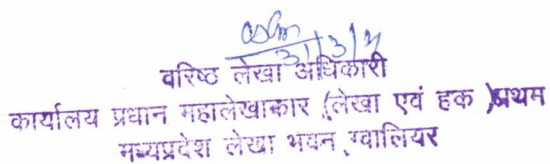 31/3/
वरिष्ठ लेखा अधिकारी
कार्यालय प्रधान महालेखाकार (लेखा एवं हक )प्रथम
मध्यप्रदेश लेखा भवन, ग्वालियर